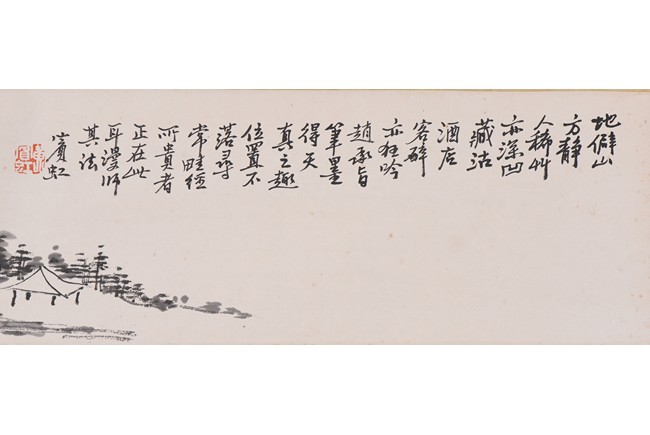 地僻山
方静
人稀艸
亦深凹
藏沽
酒店
客醉
亦狂吟
趙承旨
筆墨
得天
真之趣
位置不
落尋
常畦徑
所貴者
正在此
耳漫師
其法
賓虹